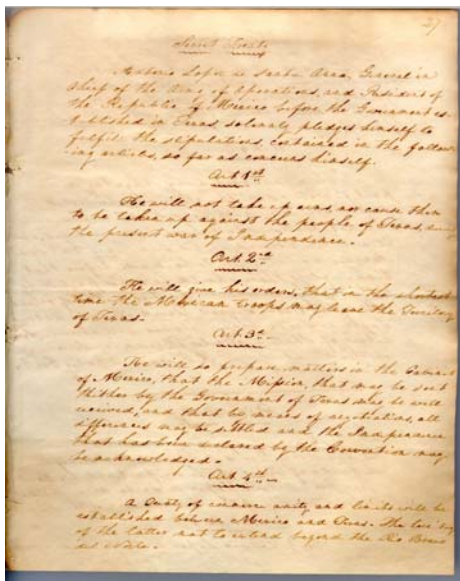 27
Secret Treaty
Antonio Lopez de Santa Anna, General in
Chief of the Army of Operations, and President of
the Republic of Mexico before the Government es-
tablished in Texas, solemnly pledges himself to
fulfil the stipulations, contained in the follow
ing articles, so far as concerns himself.
Art. 1st
He will not take up arms, nor cause them
to be taken up against the people of Texas, during
the present war of Independence.
Art. 2nd
He will give his orders, that in the shortest
time the Mexican troops may leave the Territory
of Texas.
Art. 3d
He will so prepare matters in the Cabinet
of Mexico, that the Mission, that may be sent
thither by the Government of Texas may be well
received, and that by means of negotiations, all
differences may be settled and the Independence
that has been declared by the Convention may
be acknowledged.
Art. 4th
A treaty of commerce amity and limits will be
established between Mexico and Texas. The territory
of the latter not to extend beyond the Rio Bravo
del Norte.